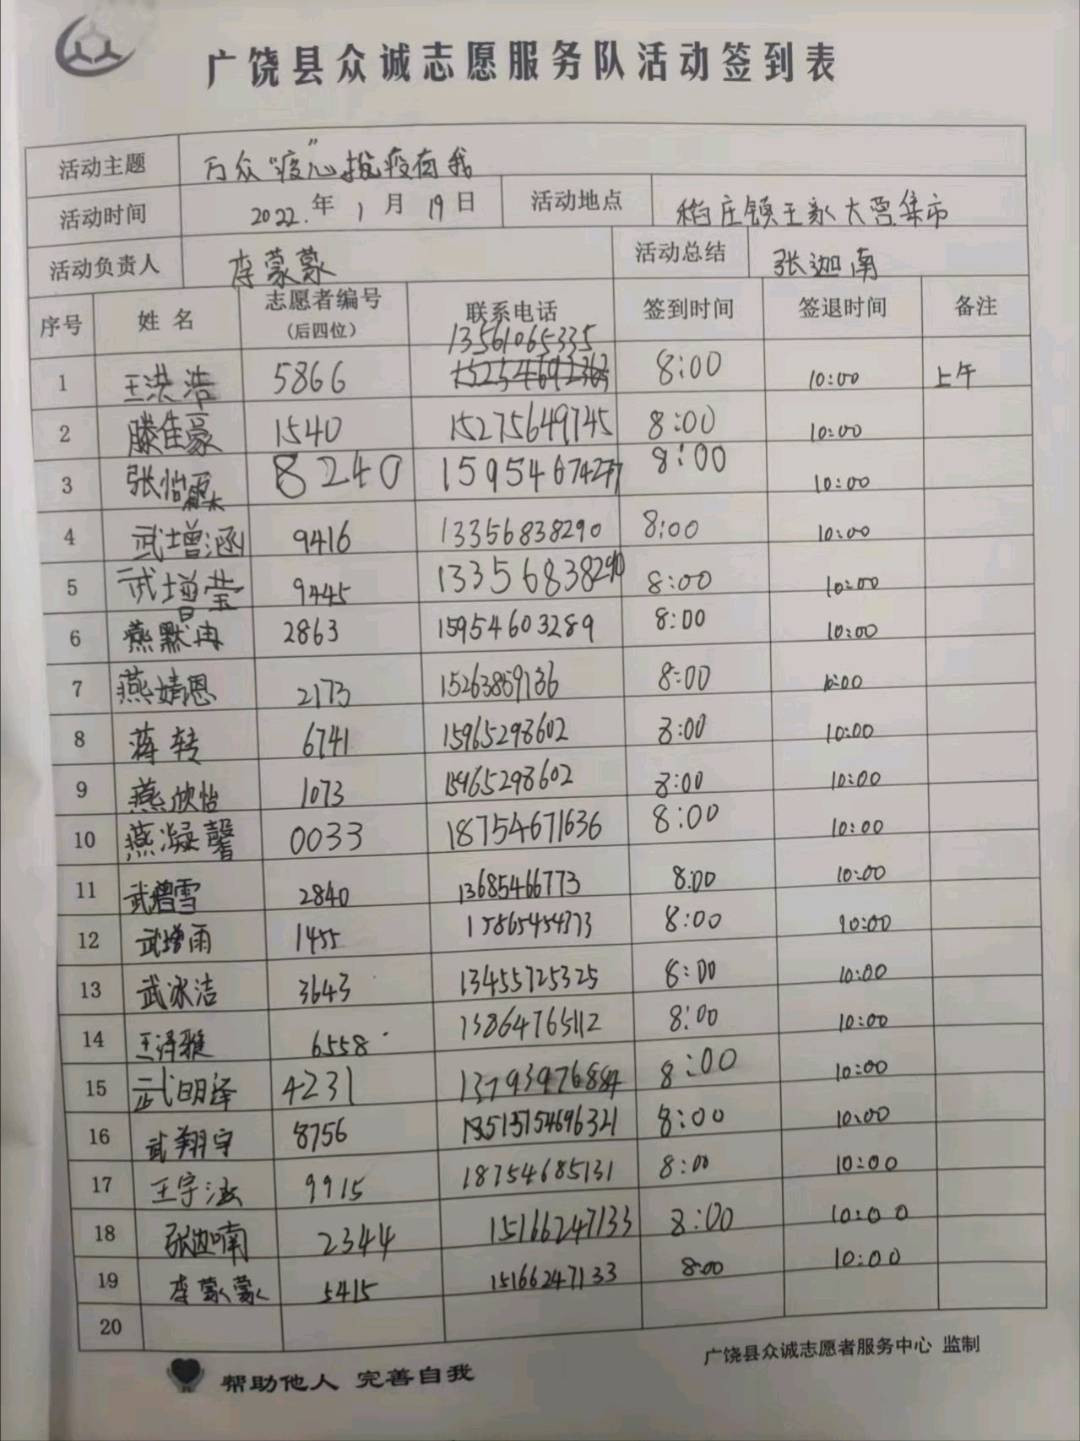 广饶县众诚志愿服务队活动签到表
活动主题 万众"疫"心 抗疫有我
活动时间 2022.年 1 月 19 日 活动地点 稻庄镇王家大营集市
活动负责人 李蒙蒙 活动总结 张迦南
序号 姓 名 志愿者编号 (后四位) 联系电话 签到时间 签退时间 备注
13561065335
1 王洪浩 5866 8:00 10:00 上午
2 滕佳豪 1540 15275649745 8:00 10:00
3 张怡 8240 15954674277 8:00 10:00
4 武增涵 9416 13356838290 8:00 10:00
5 武增莹 9445 13356838290 8:00 10:00
6 燕默冉 2863 15954603289 8:00 10:00
7 燕婧恩 2173 15263859136 8:00 10:00
8 蒋转 6741 15965298602 8:00 10:00
9 燕欣怡 1073 15965298602 8:00 10:00
10 燕凝馨 0033 18754671636 8:00 10:00
11 武增雪 2840 13685466773 8:00 10:00
12 武增雨 1455 15865454373 8:00 10:00
13 武冰洁 3643 13455725325 8:00 10:00
14 王泽雅 6558 13864765112 8:00 10:00
15 武明泽 4231 13793976884 8:00 10:00
16 武翔宇 8756 8:00 10:00
17 王宇涵 9915 18754685131 8:00 10:00
18 张迦喃 2344 15166247133 8:00 10:00
19 李蒙蒙 5415 15166247133 8:00 10:00
20
帮助他人 完善自我
广饶县众诚志愿者服务中心 监制